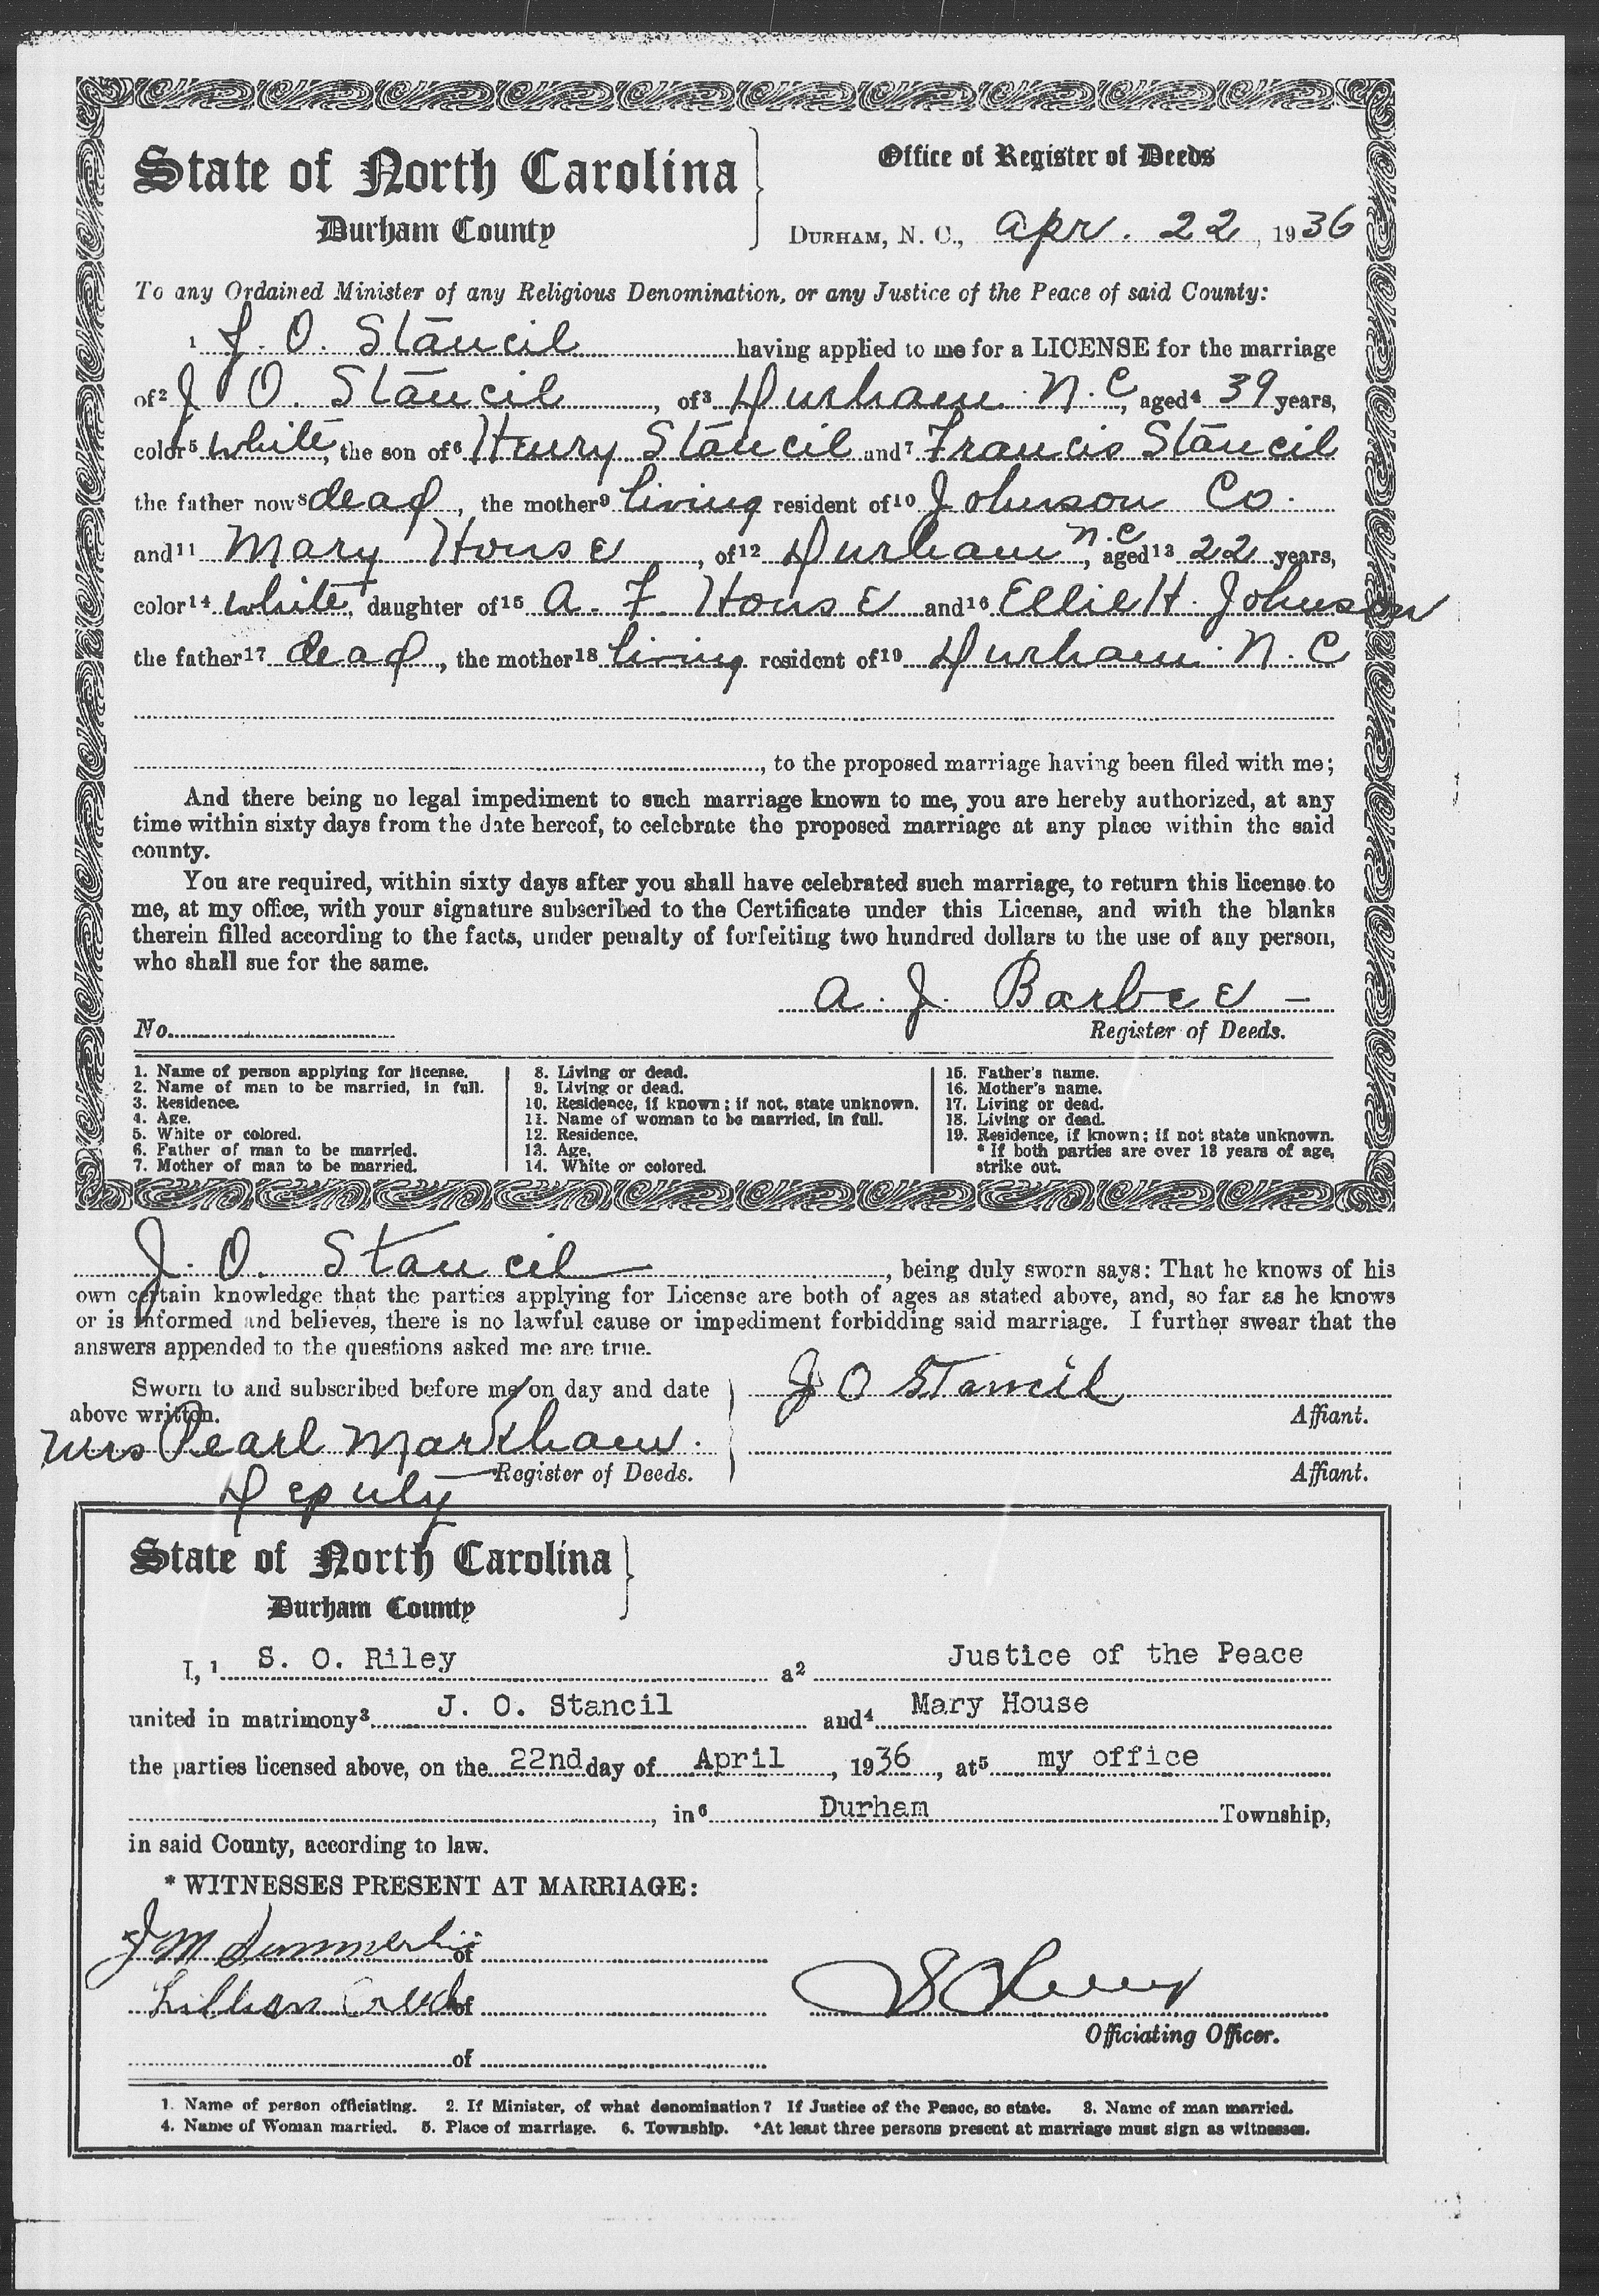 State of North Carolina
Durham County
Office of Register of Deeds
DURHAM, N. C., Apr. 22, 1936
To any Ordained Minister of any Religious Denomination, or any Justice of the Peace of said County:
1 J. O. Stancil having applied to me for a LICENSE for the marriage
of2 J O. Stancil, of3 Durham N. C, aged4 39 years,
color5 White, the son of6 Henry Stancil and7 Francis Stancil
the father now8 dead, the mother9 living resident of10 Johnson Co.
and11 Mary House, of12 Durham N.C, aged13 22 years,
color14 White, daughter of15 A. F House and16 Ellie H. Johnson
the father17 dead, the mother18 living resident of19 Durham N. C
, to the proposed marriage having been filed with me;
And there being no legal impediment to such marriage known to me, you are hereby authorized, at any
time within sixty days from the date hereof, to celebrate the proposed marriage at any place within the said
county.
You are required, within sixty days after you shall have celebrated such marriage, to return this license to
me, at my office, with your signature subscribed to the Certificate under this License, and with the blanks
therein filled according to the facts, under penalty of forfeiting two hundred dollars to the use of any person,
who shall sue for the same.
A. J. Barbee
No. Register of Deeds.
1. Name of person applying for license.
2. Name of man to be married, in full.
3. Residence.
4. Age.
5. White or colored.
6. Father of man to be married.
7. Mother of man to be married.
8. Living or dead.
9. Living or dead.
10. Residence, if known; if not, state unknown.
11. Name of woman to be married, in full.
12. Residence.
13. Age.
14. White or colored.
15. Father's name.
16. Mother's name.
17. Living or dead.
18. Living or dead.
19. Residence, if known; if not state unknown.
* If both parties are over 18 years of age,
strike out.
J. O. Stancil, being duly sworn says: That he knows of his
own certain knowledge that the parties applying for License are both of ages as stated above, and, so far as he knows
or is informed and believes, there is no lawful cause or impediment forbidding said marriage. I further swear that the
answers appended to the questions asked me are true.
Sworn to and subscribed before me on day and date
above written.
Mrs Pearl Markham.
Register of Deeds.
Deputy
J O Stancil
Affiant.
Affiant.
State of North Carolina
Durham County
I, 1 S. O. Riley a2 Justice of the Peace
united in matrimony3 J. O. Stancil and4 Mary House
the parties licensed above, on the 22nd day of April, 1936, at5 my office
, in6 Durham Township,
in said County, according to law.
* WITNESSES PRESENT AT MARRIAGE:
J M of
Lillian of
of
Officiating Officer.
1. Name of person officiating. 2. If Minister, of what denomination? If Justice of the Peace, so state. 3. Name of man married.
4. Name of Woman married. 5. Place of marriage. 6. Township. *At least three persons present at marriage must sign as witnesses.